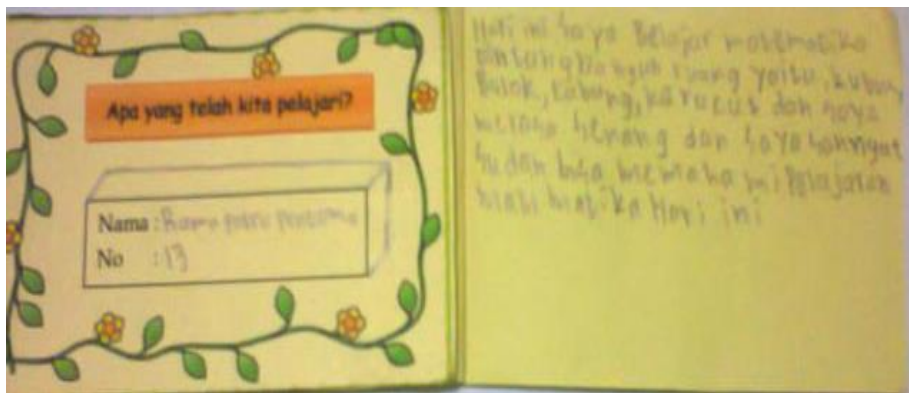 Apa yang telah kita pelajari?
Nama : Rama
No : 13
Hari ini saya Belajar matematika
bangun ruang yaitu, kubus,
Balok, tabung, kerucut dan saya
merasa senang dan saya sangat
sudah bisa memahami Pelajaran
Hari ini